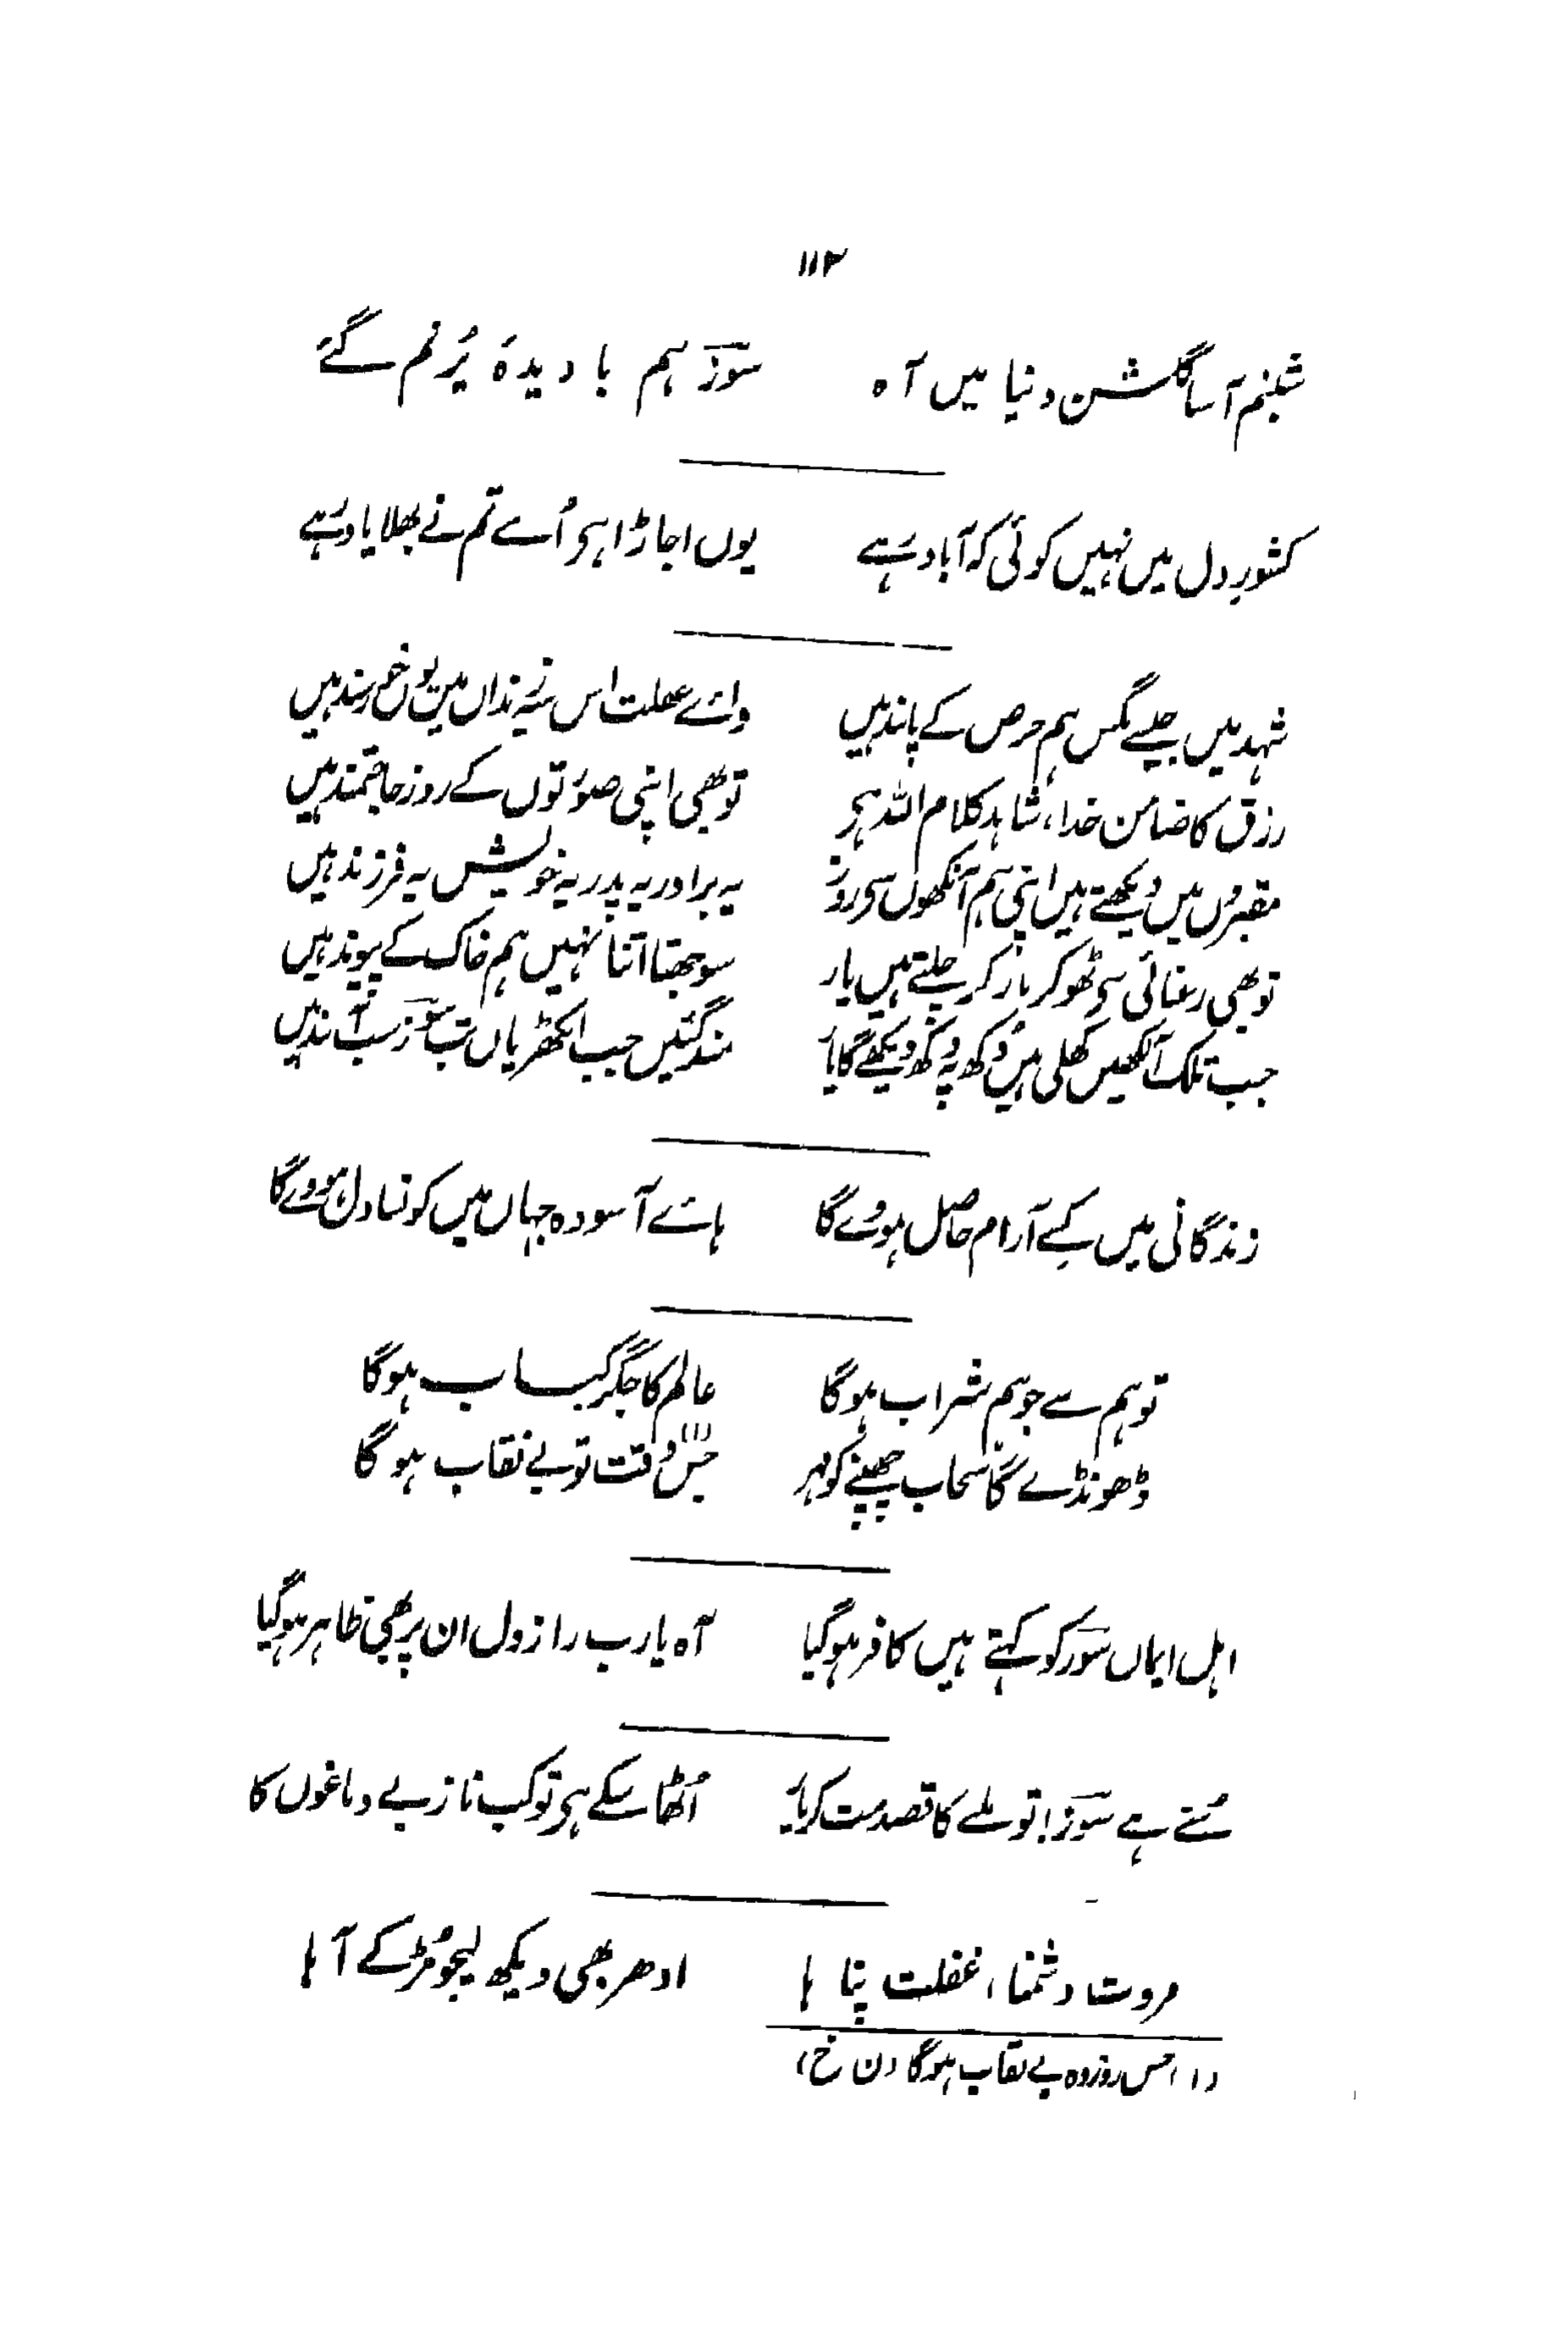 ۱۱۲
شبنم آسا گلشن دنیا میں آہ سوزؔ ہم با دیدۂ پُر نم گئے
کشورِ دل میں نہیں کوئی کہ آباد رہے یوں اجاڑا ہی اُسے تم نے بھلا یاد رہے
شہد میں جیسے مگس ہم حرص کے پابند ہیں وائے غفلت اس زنداں میں یوں خرسند ہیں
رزق کا ضامن خدا، شاہد کلام اللہ ہی تو بھی اپنی صورتوں کے روز حاجتمند ہیں
مقبروں میں دیکھتے ہیں اپنی ہم آنکھوں سی روز یہ برادر یہ پدر یہ خویش یہ فرزند ہیں
تو بھی رعنائی سی ٹھوکر مار کر چلتے ہیں یار سوجھتا اتنا نہیں ہم خاک کے پیوند ہیں
جب تلک آنکھیں کھلی ہیں دُکھ پہ دُکھ دیکھے گا یار مند گئیں جب انکھڑیاں تب سوزؔ سب آنند ہیں
زندگانی میں کسے آرام حاصل ہووے گا ہائے آسودہ جہاں میں کونسا دل ہووے گا
تو ہم سے جو ہم شراب ہوگا عالم کا جگر کباب ہوگا
ڈھونڈے گا سحاب چھپنے کو مہر جس وقت تو بے نقاب ہوگا (۱)
اہل ایماں سوزؔ کو کہتے ہیں کافر ہوگیا آہ یا رب راز دل ان پر بھی ظاہر ہوگیا
سُنے ہے سوزؔ! تو ملنے کا قصد مت کر یار اُٹھا سکے ہی تو کب ناز بے دماغوں کا
مروت دشمنا، غفلت پنا ہا ادھر بھی دیکھ لیجو مُڑ کے آہا
(۱) جس روز وہ بے نقاب ہوگا (ن خ)